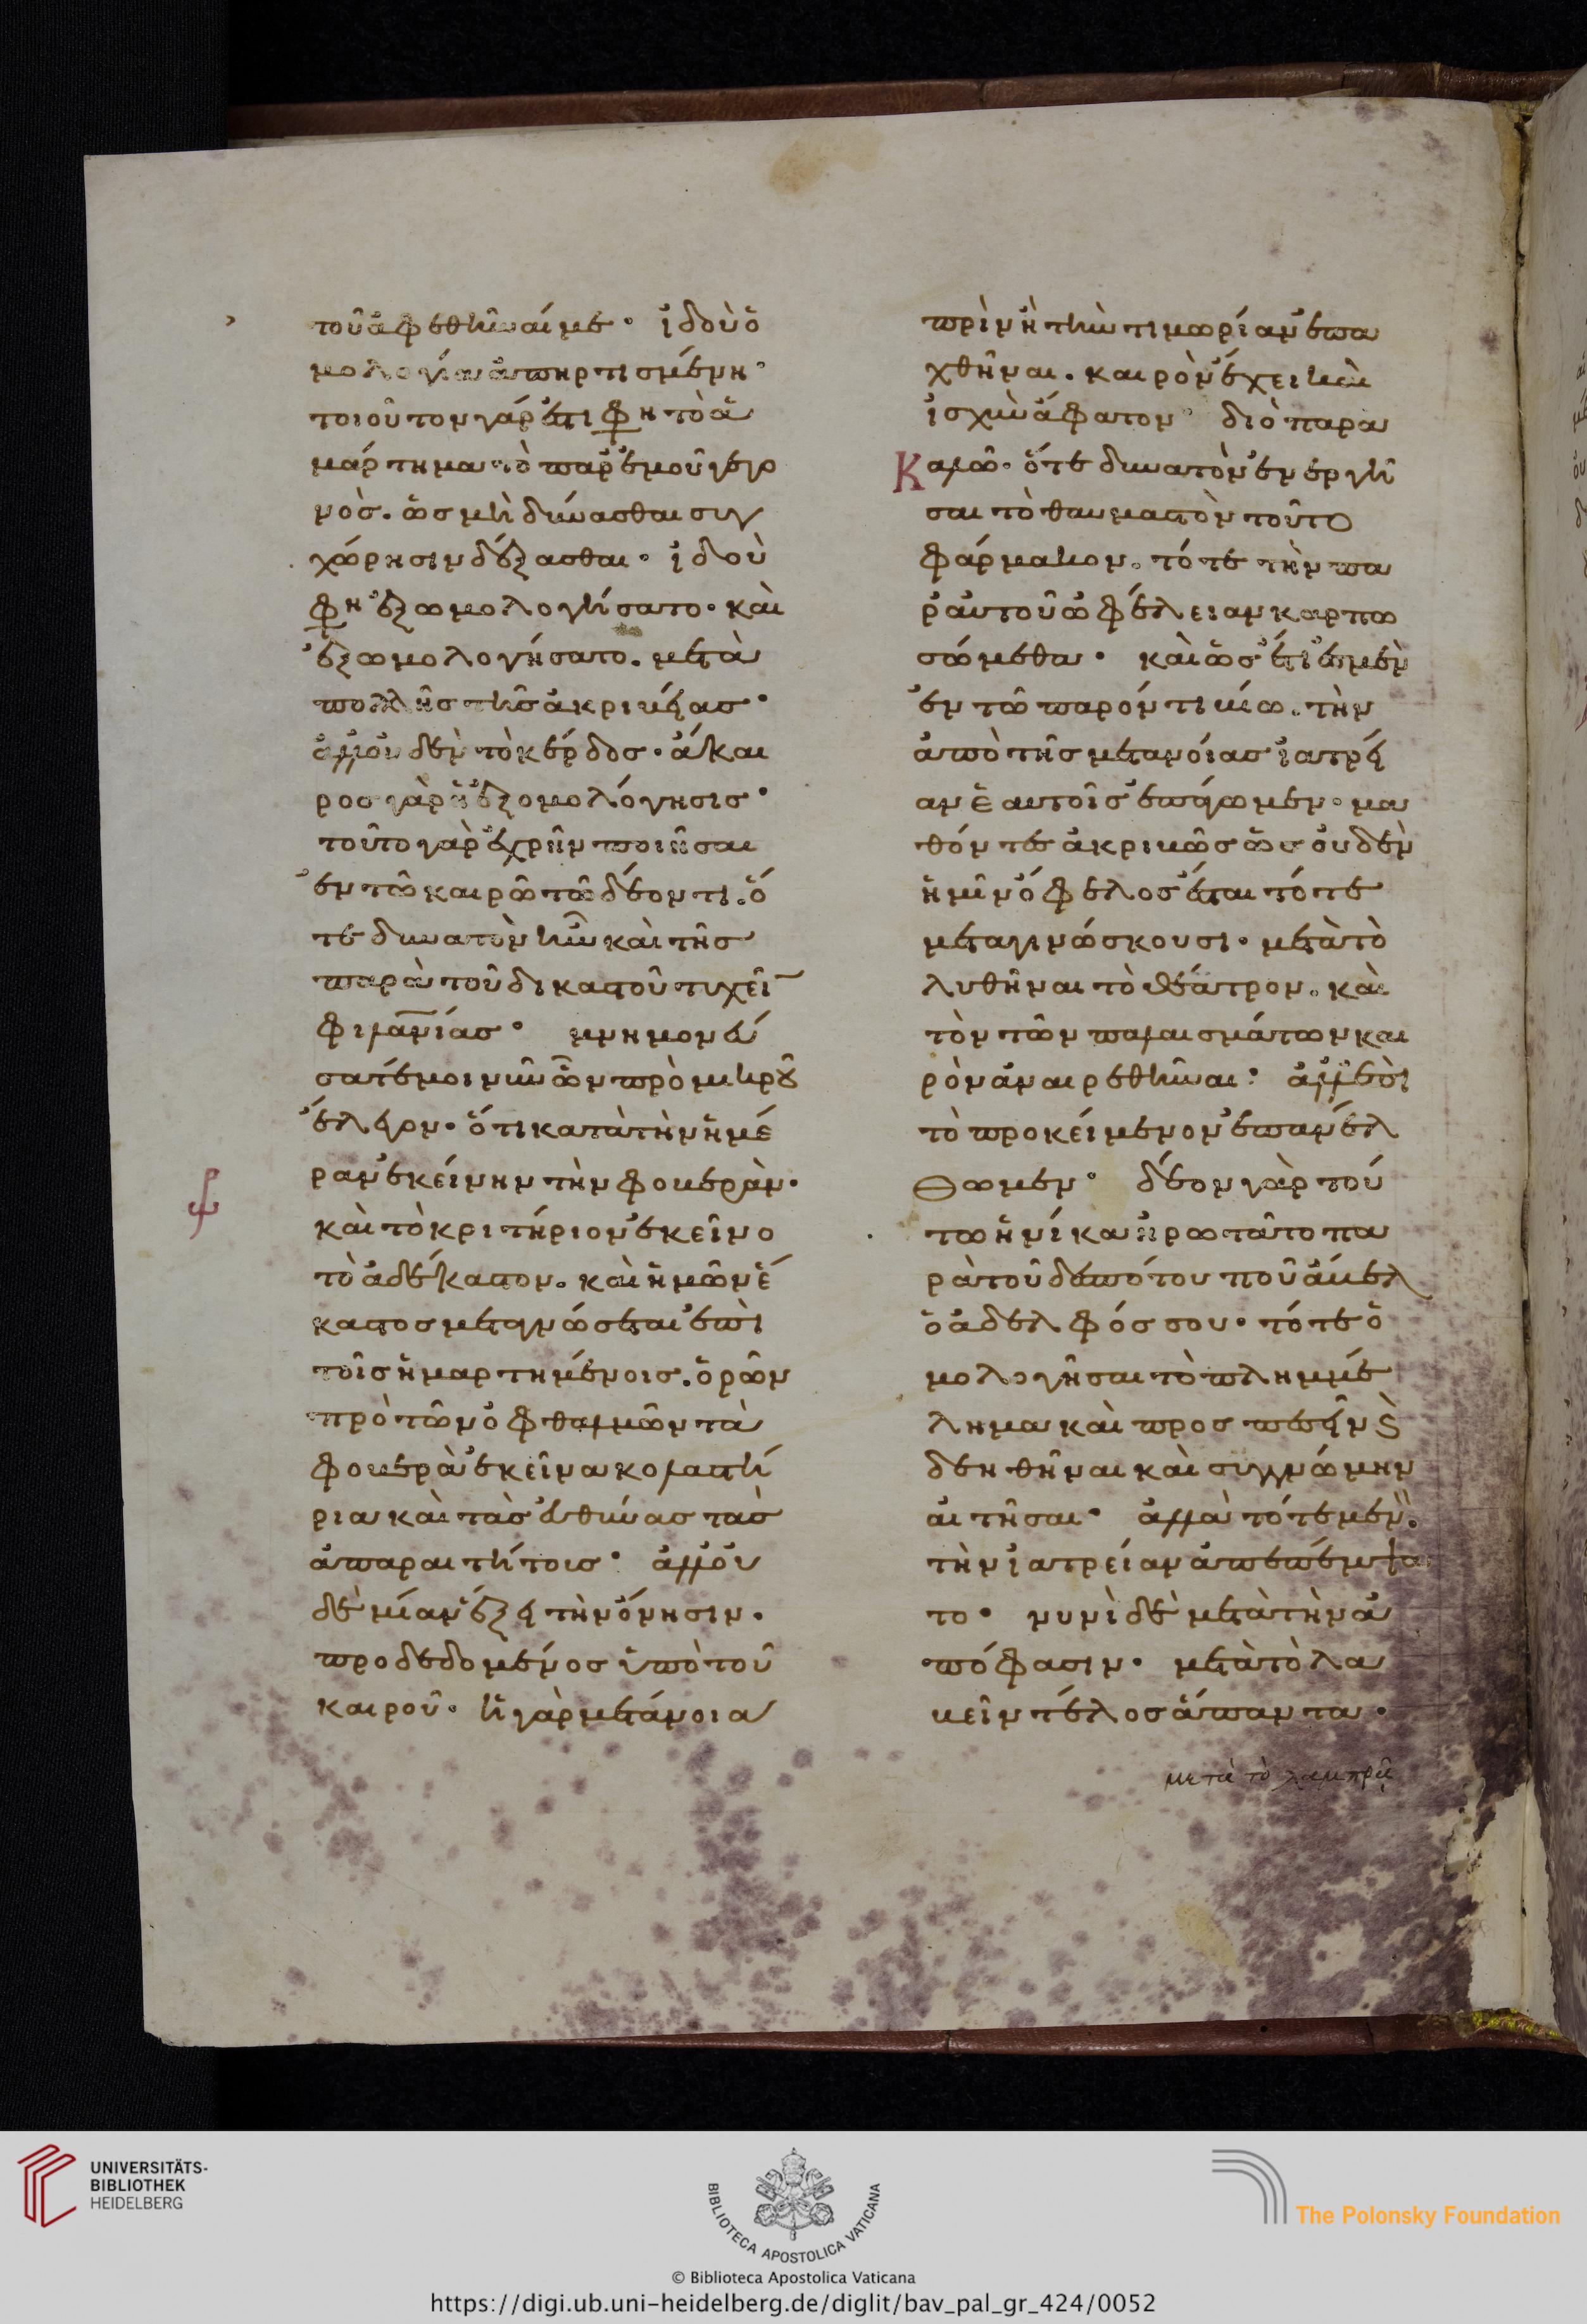 τοῦ ἀφεθῆναί με· ἰδοὺ ὁ
μολογία ἀπηρτισμένη·
τοιοῦτον γάρ ἐστι φη τὸ ἁ
μάρτημα τὸ παρ ἐμοῦ γεγο
νὸς. ὡς μὴ δύνασθαι συγ
χώρησιν δέξασθαι· ἰδοὺ
φη ἐξωμολογήσατο· καὶ
ἐξωμολογήσατο. μετὰ
πολλῆς τῆς ἀκριβείας·
ἀλλ οὐδὲν τὸ κέρδος· ἄκαι
ρος γὰρ ἡ ἐξομολόγησις·
τοῦτο γὰρ ἐχρῆν ποιῆσαι
ἐν τῶ καιρῶ τῶ δέοντι. ὅ
τε δυνατὸν ἦν καὶ τῆς
παρὰ τοῦ δικαστοῦ τυχεῖ
φιλανίας· μνημονεύ
σατέ μοι νῦν ὧν πρὸ μικροῦ
ἔλεγον· ὅτι κατὰ τὴν ἡμέ
ραν ἐκείνην τὴν φοβερὰν·
καὶ τὸ κριτήριον ἐκεῖνο
τὸ ἀδέκαστον. καὶ ἡμῶν ἕ
καστος μεταγνώσεται ἐπὶ
τοῖς ἡμαρτημένοις. ὁρῶν
πρὸ τῶν ὀφθαλμῶν τὰ
φοβερὰ ἐκεῖνα κολαστή
ρια καὶ τὰς εὐθύνας τὰς
ἀπαραιτήτοις· ἀλλ οὐ
δὲ μίαν ἕξει τὴν ὄνησιν.
προδεδομένος ὑπὸ τοῦ
καιροῦ· ἡ γὰρ μετάνοια
πρὶν ἢ τὴν τιμωρίαν ἐπα
χθῆναι. καιρὸν ἔχει καὶ
ἰσχὺν ἄφατον· διὸ παρα
Καλῶ· ὅτε δυνατὸν ἐνεργῆ
σαι τὸ θαυμαστὸν τοῦτο
φάρμακον. τότε τὴν πα
ρ αὐτοῦ ὠφέλειαν καρπω
σώμεθα· καὶ ὡς ἔτι ἐσμὲν
ἐν τῶ παρόντι βίω. τὴν
ἀπὸ τῆς μετανοίας ἰατρεί
αν ἑαυτοῖς ἐπάγωμεν· μα
θόντες ἀκριβῶς ὡς οὐδὲν
ἡμῖν ὄφελος ἔσται τότε
μεταγινώσκουσι· μετὰ τὸ
λυθῆναι τὸ θέατρον. καὶ
τὸν τῶν παλαισμάτων και
ρὸν ἀναιρεθῆναι· ἀλλ ἐπὶ
τὸ προκείμενον ἐπανέλ
θωμεν· δέον γὰρ τού
τω ἡνίκα ἠρωτᾶτο πα
ρὰ τοῦ δεσπότου ποῦ ἄβελ
ὁ ἀδελφός σου· τότε ὁ
μολογῆσαι τὸ πλημμέ
λημα καὶ προσπεσεῖν καὶ
δεηθῆναι καὶ συγγνώμην
αἰτῆσαι· ἀλλὰ τότε μὲν
τὴν ἰατρείαν ἀπεπέμψα
το· νυνὶ δὲ μετὰ τὴν ἀ
πόφασιν· μετὰ τὸ λα
βεῖν τέλος ἅπαντα·
μετὰ τὸ λαμπρᾷ
UNIVERSITÄTS-
BIBLIOTHEK
HEIDELBERG
BIBLIOTECA APOSTOLICA VATICANA
The Polonsky Foundation
© Biblioteca Apostolica Vaticana
https://digi.ub.uni-heidelberg.de/diglit/bav_pal_gr_424/0052